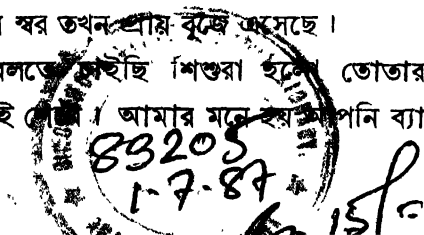 স্বর তখন প্রায় বুজে এসেছে।
বলতে চাইছি শিশুরা হলো তোতার
আমার মনে হয় আপনি ব্যা
89205
1-7-87